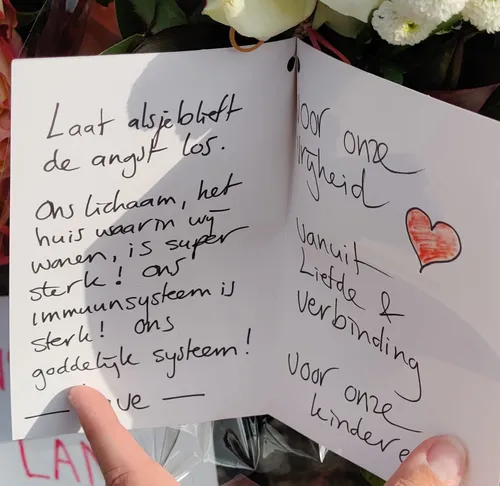 Laat alsjeblieft
de angst los.
Ons lichaam, het
huis waarin wij
wonen, is super
sterk! Ons
immuunsysteem is
sterk! Ons
goddelijk systeem!
onze
vanuit
Liefde &
verbinding
voor onze
LAN